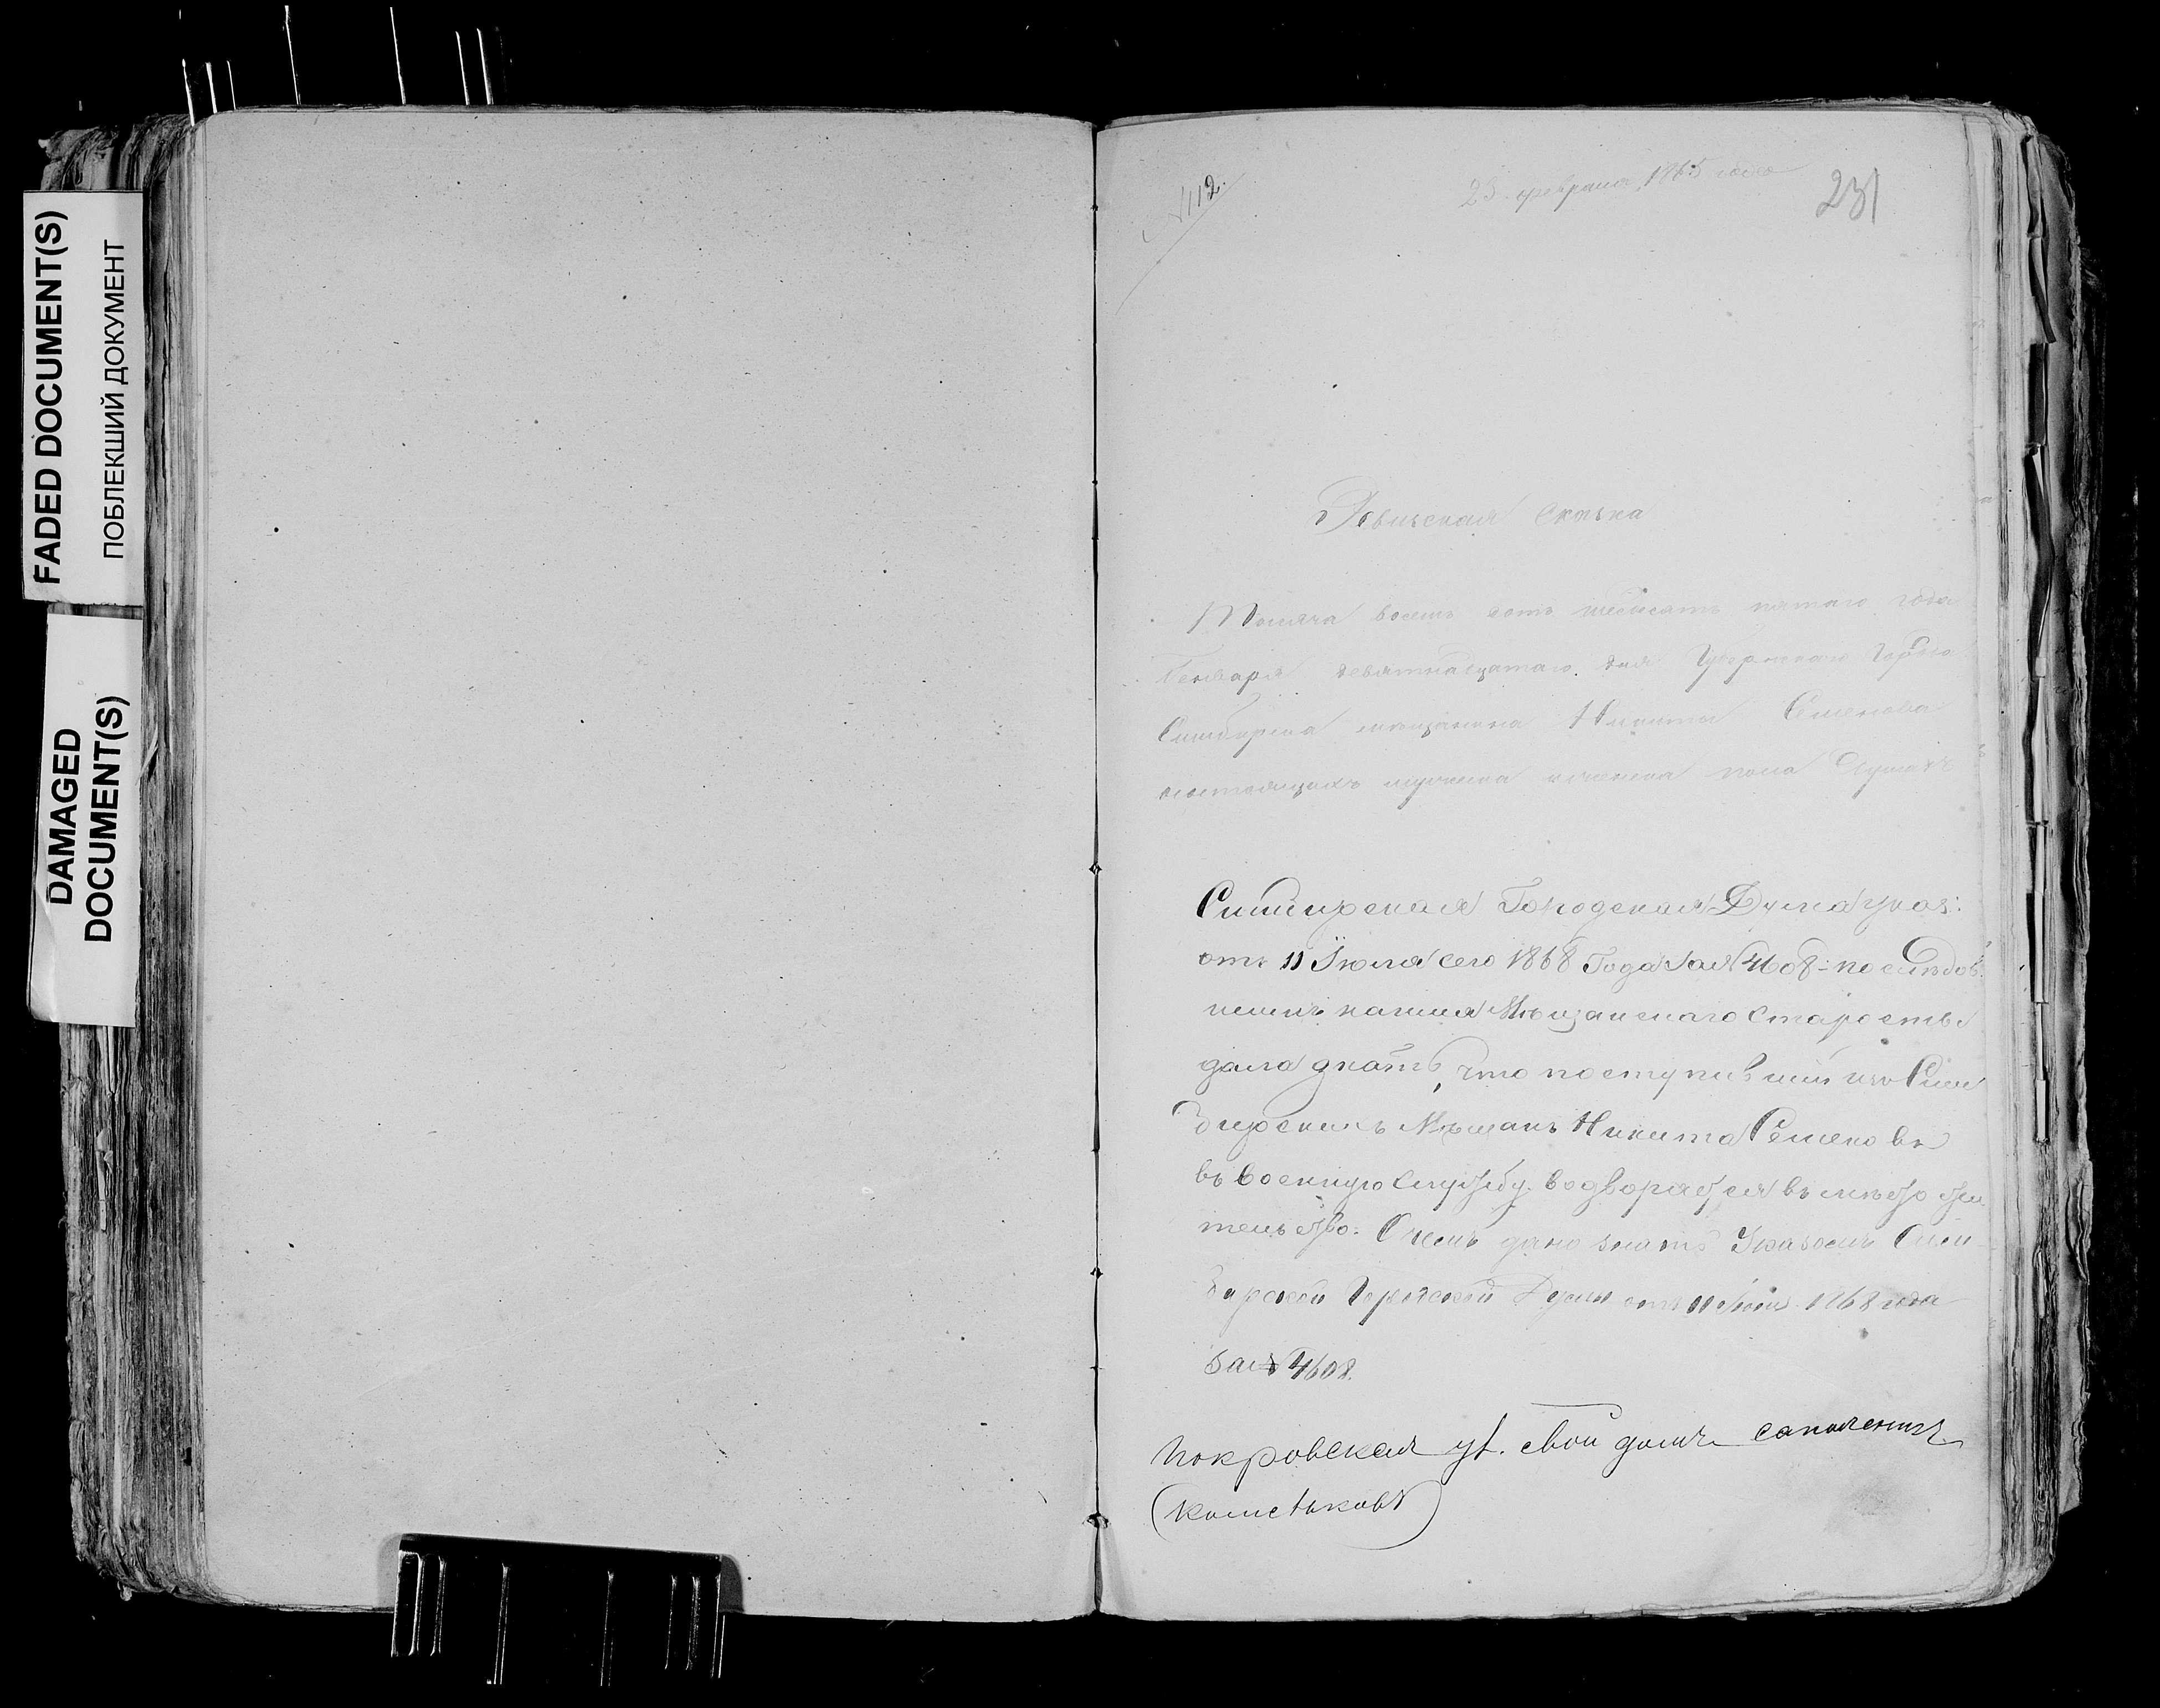 FADED DOCUMENT(S)
ПОБЛЕКШИЙ ДОКУМЕНТ
DAMAGED
DOCUMENT(S)
№112.
23 февраля 1865 года
231
Ревизская сказка
Тысяча восемь сотъ шестьдесятъ пятаго года
Генваря девятнадцатаго дня Губернскаго Города
Симбирска мещанина Никиты Семенова
состоящихъ мужеска и женска пола
Симбирская Городская Дума указ:
отъ 11 Іюля сего 1868 Года за № 4608 - по
Мѣщанскаго Старосты
дала знать, что поступившій изъ Сим
бирскихъ Мѣщанъ Никита Семеновъ
въ военную службу водворяется въ мѣсто жи
тельство. О чемъ дано знать Указомъ Сим
бирской Городской Думы отъ 11 Іюля 1868 года
за № 4608.
Покровская ул. свой домъ